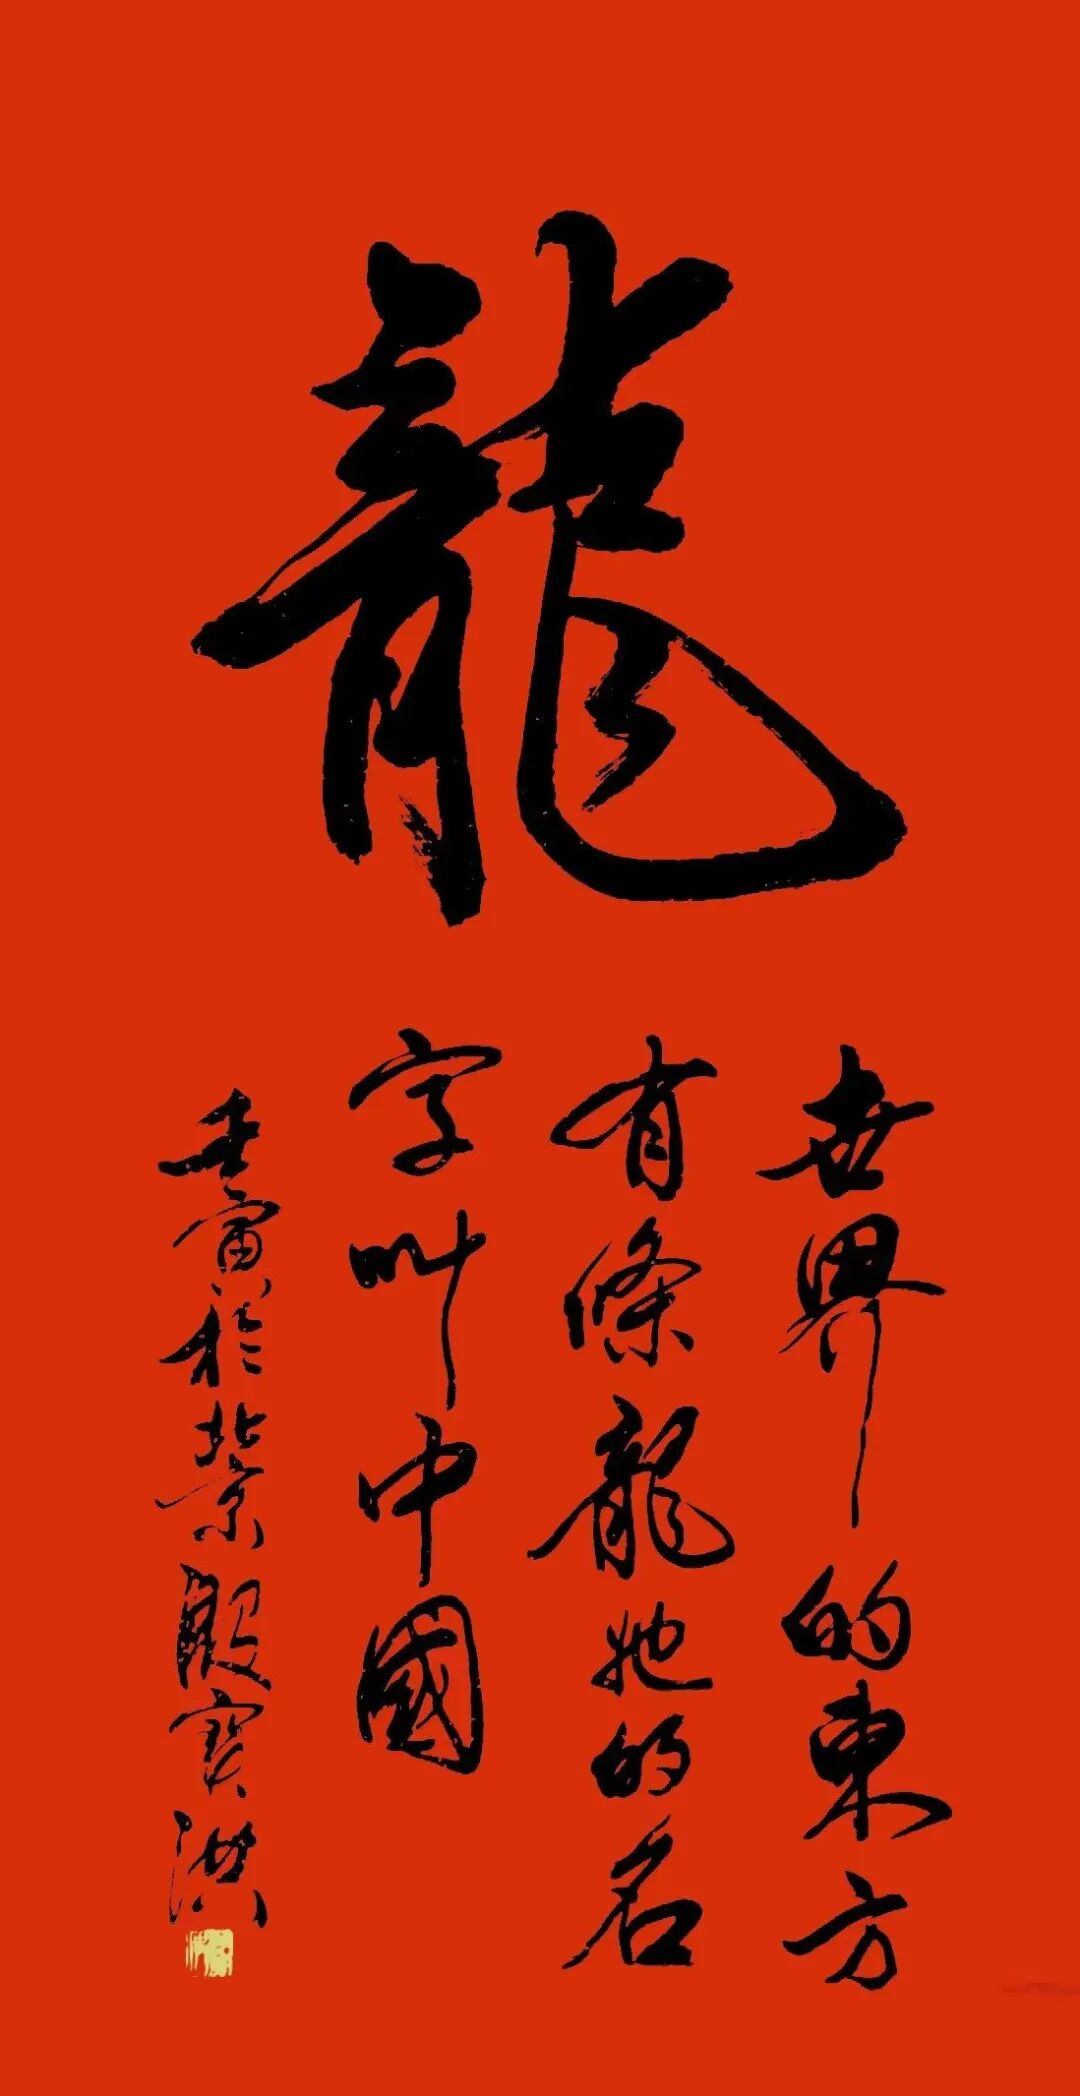 龍
世界的東方
有條龍她的名
字叫中國
壬寅於北京殷寶洪